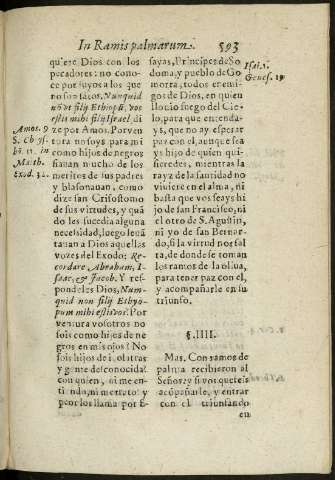 In Ramis palmarum.
593
quiere Dios con los
pecadores: no cono-
ce por suyos a los que
no son tales. Nunquid
non vt filij Ethiopũ, vos
estis mihi filij Israel, di
ze por Amos. Por ven
tura no soys para mi
como hijos de negros
fiauan mucho de los
meritos de sus padres
y blasonauan, como
dize san Crisostomo
de sus virtudes, y quã
do les sucedia alguna
necessidad, luego leuã
tauan a Dios aquellas
vozes del Exodo: Re-
cordare, Abraham, I-
saac, & Iacob. Y res-
pondeles Dios, Num-
quid non filij Ethyo-
pum mihi estis vos? Por
ventura vosotros no
sois como hijos de ne
gros en mis ojos? No
sois hijos de
y gente desconocida
con quien, ni me en-
tiendo, ni me trato? y
peor los llama por E-
Amos. 9
S. Ch
in
Math.
Exod. 32.
sayas, Principes de So
doma, y pueblo de Go
morra, todos enemi-
gos de Dios, en quien
llouio fuego del Cie-
lo, para que entenda-
ys, que no ay esperar
paz con el, aunque sea
ys hijo de quien qui-
sieredes, mientras la
rayz de la santidad no
viuiere en el alma, ni
basta que vos seays hi
jo de san Francisco, ni
el otro de S. Agustin,
ni yo de san Bernar-
do, si la virtud nos fal
ta, de donde se toman
los ramos de la oliua,
para tener paz con el,
y acompañarle en su
triunfo.
Isai. 1.
Genes. 19
§. IIII.
Mas. Con ramos de
palma recibieron al
Señor: y si vos quereis
acõpañarle, y entrar
con el triunfando
en